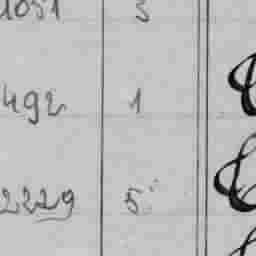 1051 3
492 1
2229 5